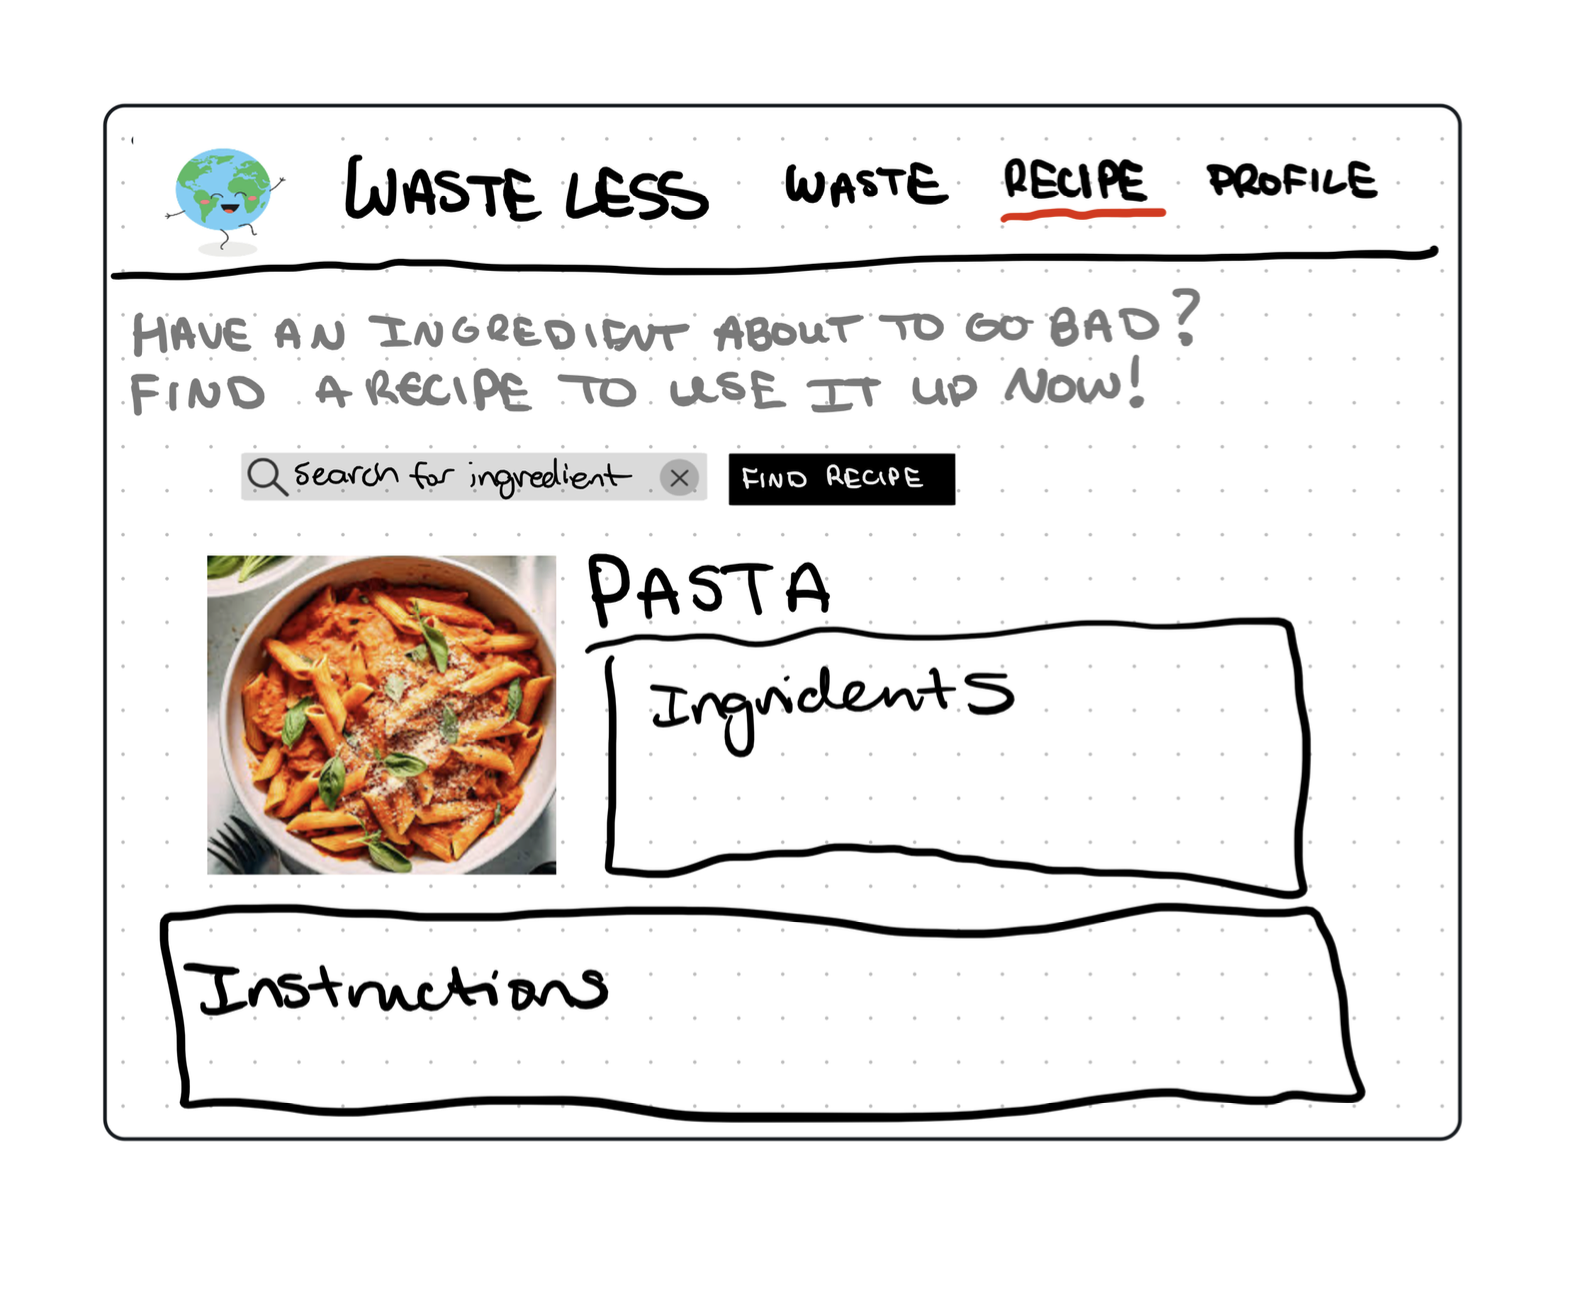 WASTE LESS WASTE RECIPE PROFILE
HAVE AN INGREDIENT ABOUT TO GO BAD?
FIND A RECIPE TO USE IT UP NOW!
Search for ingredient FIND RECIPE
PASTA
Ingridents
Instructions